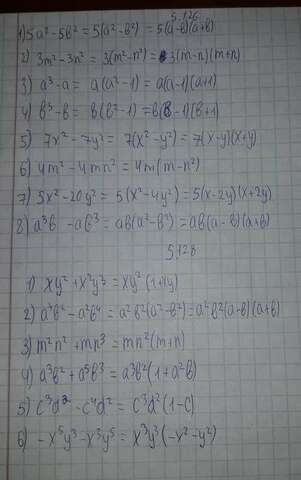 5.126
1) 5a² - 5b² = 5(a² - b²) = 5(a-b)(a+b)
2) 3m² - 3n² = 3(m² - n²) = 3(m-n)(m+n)
3) a³ - a = a(a² - 1) = a(a-1)(a+1)
4) b³ - b = b(b² - 1) = b(b-1)(b+1)
5) 7x² - 7y² = 7(x² - y²) = 7(x-y)(x+y)
6) 4m² - 4mn² = 4m(m - n²)
7) 5x² - 20y² = 5(x² - 4y²) = 5(x-2y)(x+2y)
8) a³b - ab³ = ab(a² - b²) = ab(a-b)(a+b)
5.128
1) xy² + x²y³ = xy²(1+xy)
2) a⁴b² - a²b⁴ = a²b²(a² - b²) = a²b²(a-b)(a+b)
3) m²n² + mn³ = mn²(m+n)
4) a³b² + a⁵b³ = a³b²(1 + a²b)
5) c³d² - c⁴d² = c³d²(1-c)
6) -x⁵y³ - x³y⁵ = x³y³(-x² - y²)